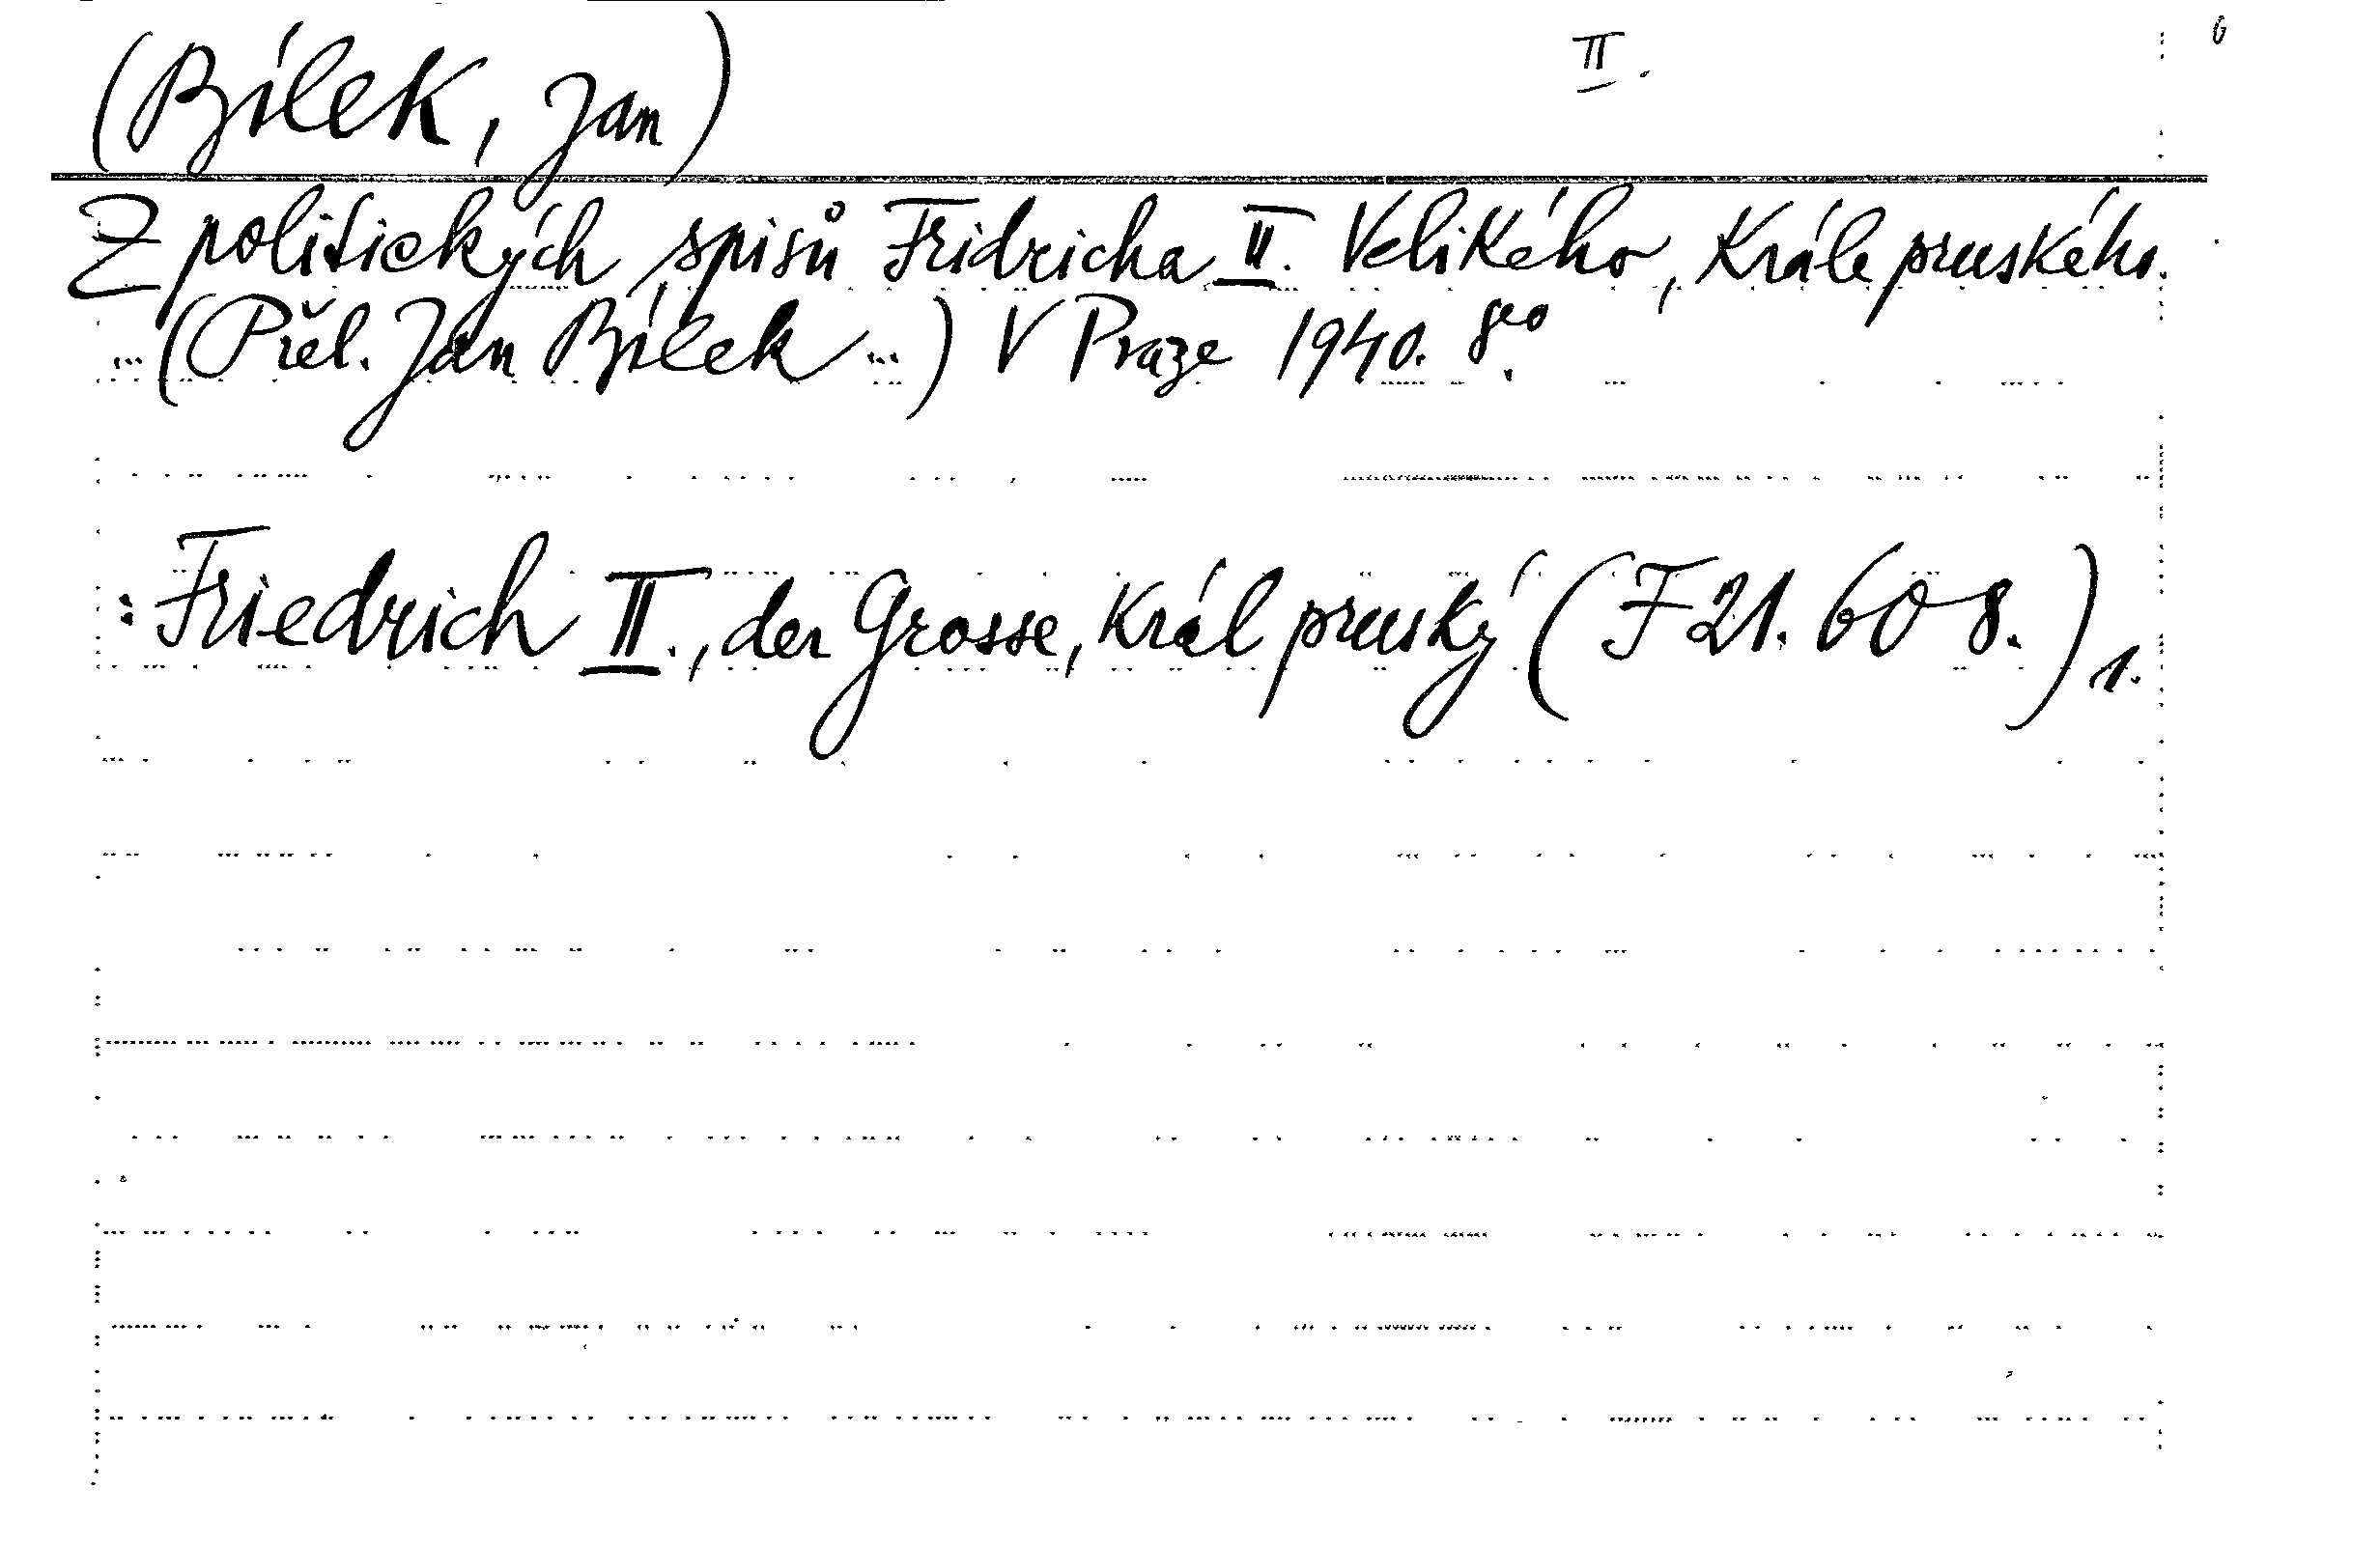 (Bílek, Jan) II.
Z politických spisů Fridricha II. Velikého, krále pruského.
...(Přel. Jan Bílek...) V Praze 1940. 8eo.
: Friedrich II., der Grosse, král pruský (F 21.608.) 1.